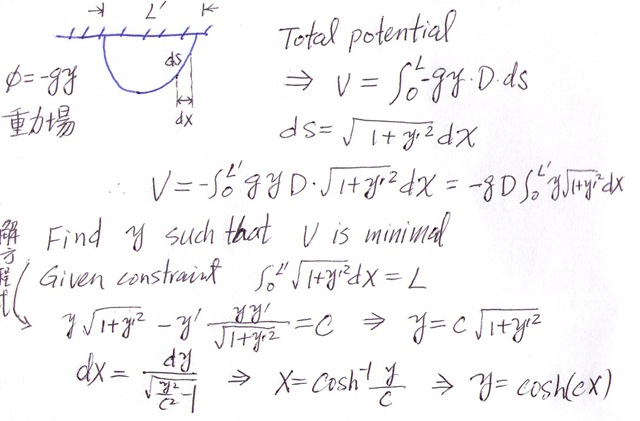 L'
Total potential
ds
ϕ=-gy
⇒ V = ∫₀ᴸ -gy·D·ds
重力場
dx
ds = √(1+y'²) dx
∴ V = -∫₀ᴸ' gyD·√(1+y'²) dx = -gD ∫₀ᴸ' y√(1+y'²) dx
解方程式
Find y such that V is minimal
Given constraint ∫₀ᴸ' √(1+y'²) dx = L
y√(1+y'²) - y' yy'/√(1+y'²) = C ⇒ y = c√(1+y'²)
dx = dy/√(y²/c² - 1) ⇒ x = cosh⁻¹ y/c ⇒ y = cosh(cx)